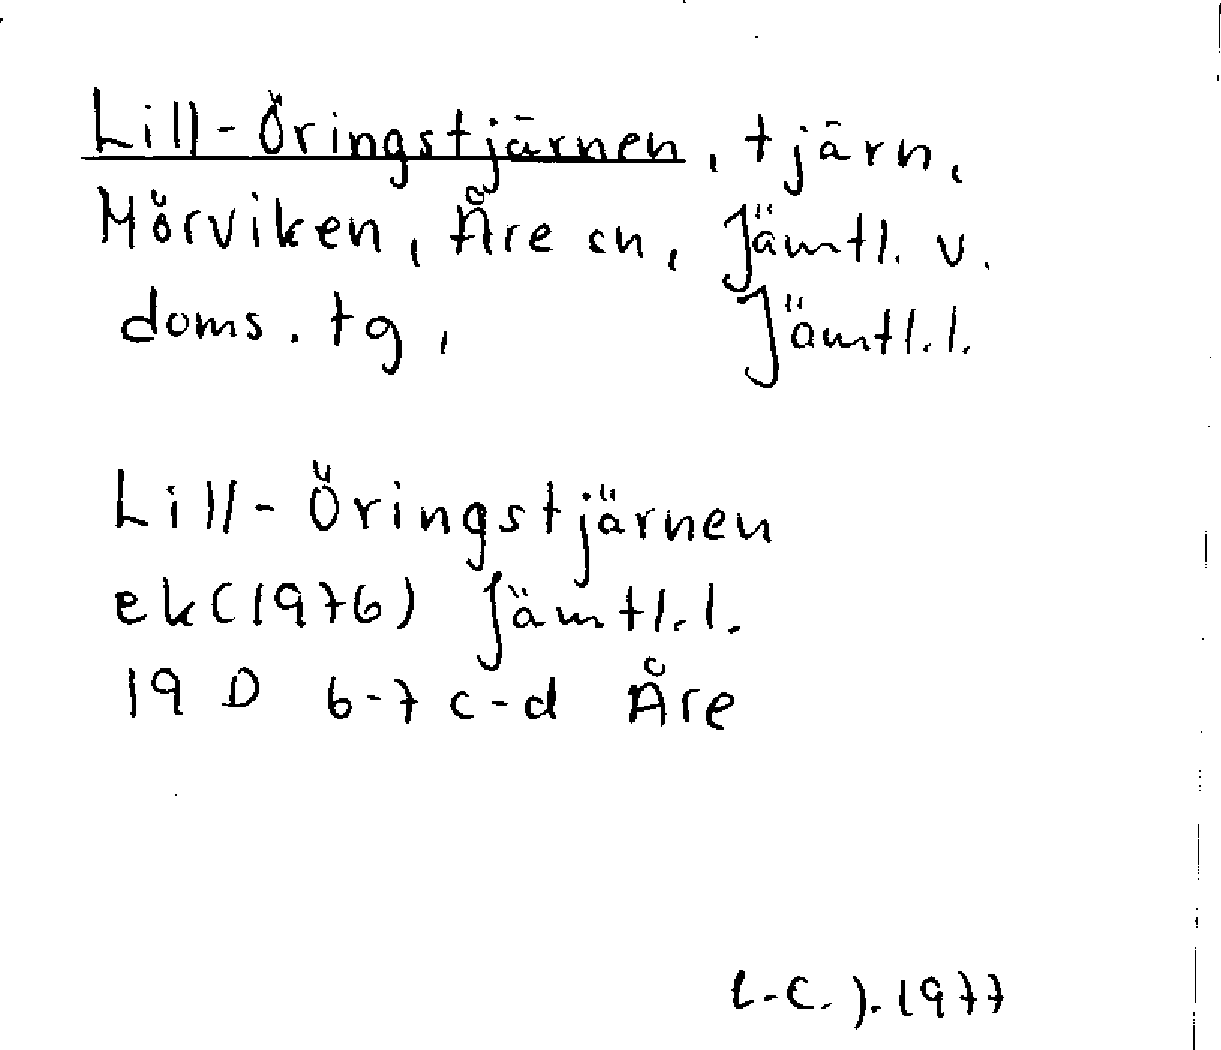 Lill-Öringstjärnen, tjärn,
Mörviken, Åre sn, Jämtl. v.
doms.tg, Jämtl.l.
Lill-Öringstjärnen
ek(1976) Jämtl.l.
19 D 6-7 c-d Åre
L-C. J. 1977